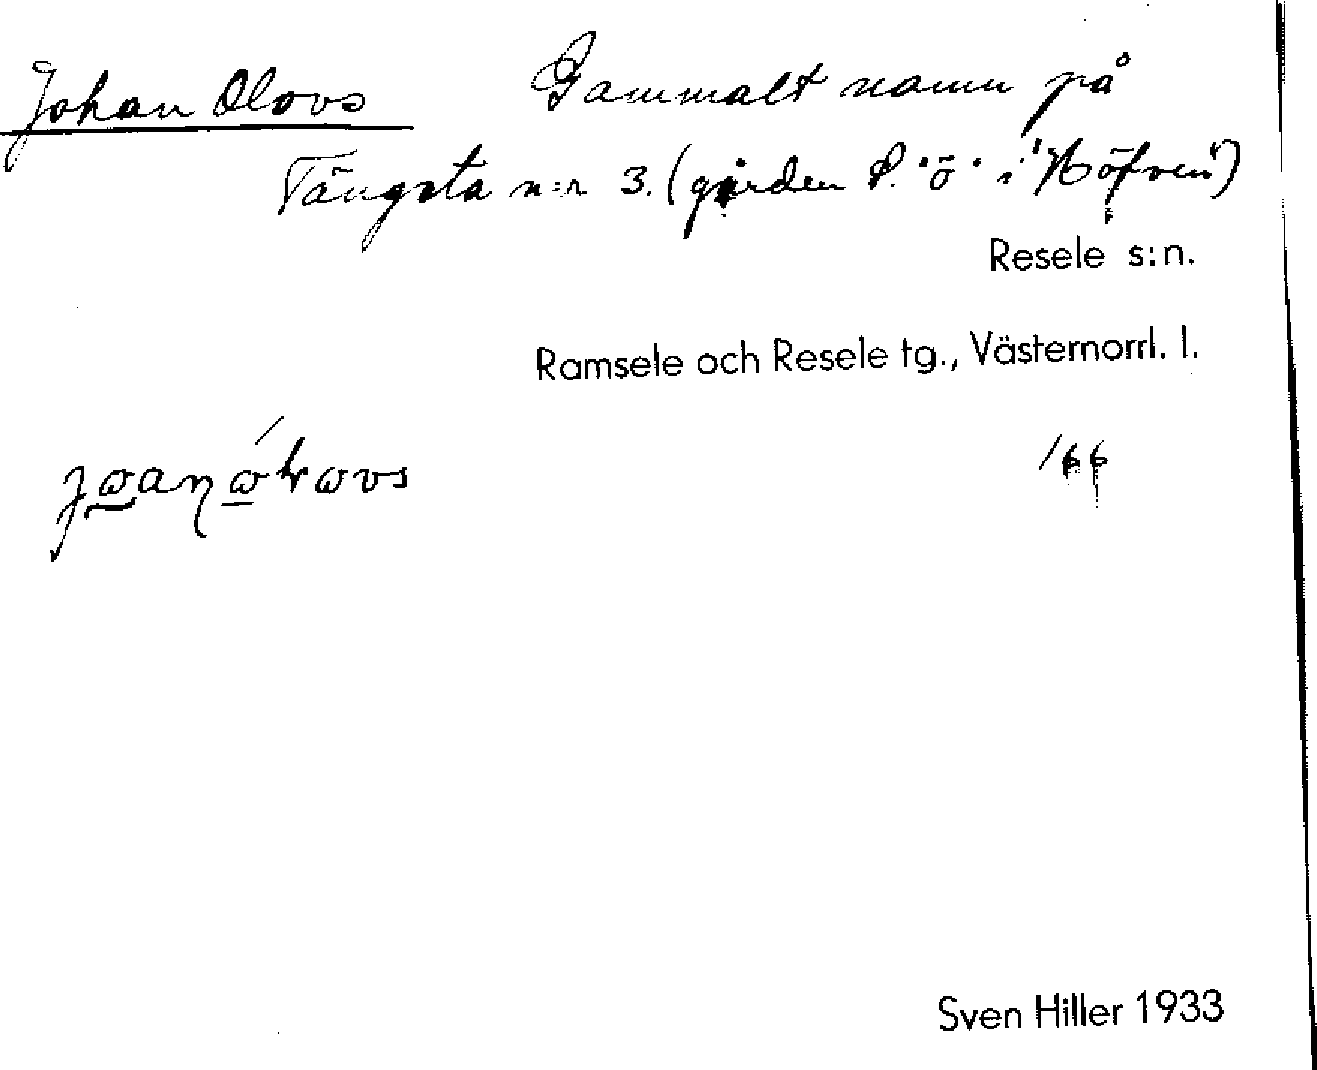 Johan Olovs Gammalt namn på
Tängsta n:r 3. (gården P. "ö" i "Höfven")
Resele s:n.
Ramsele och Resele tg., Västernorrl. l.
166
Sven Hiller 1933